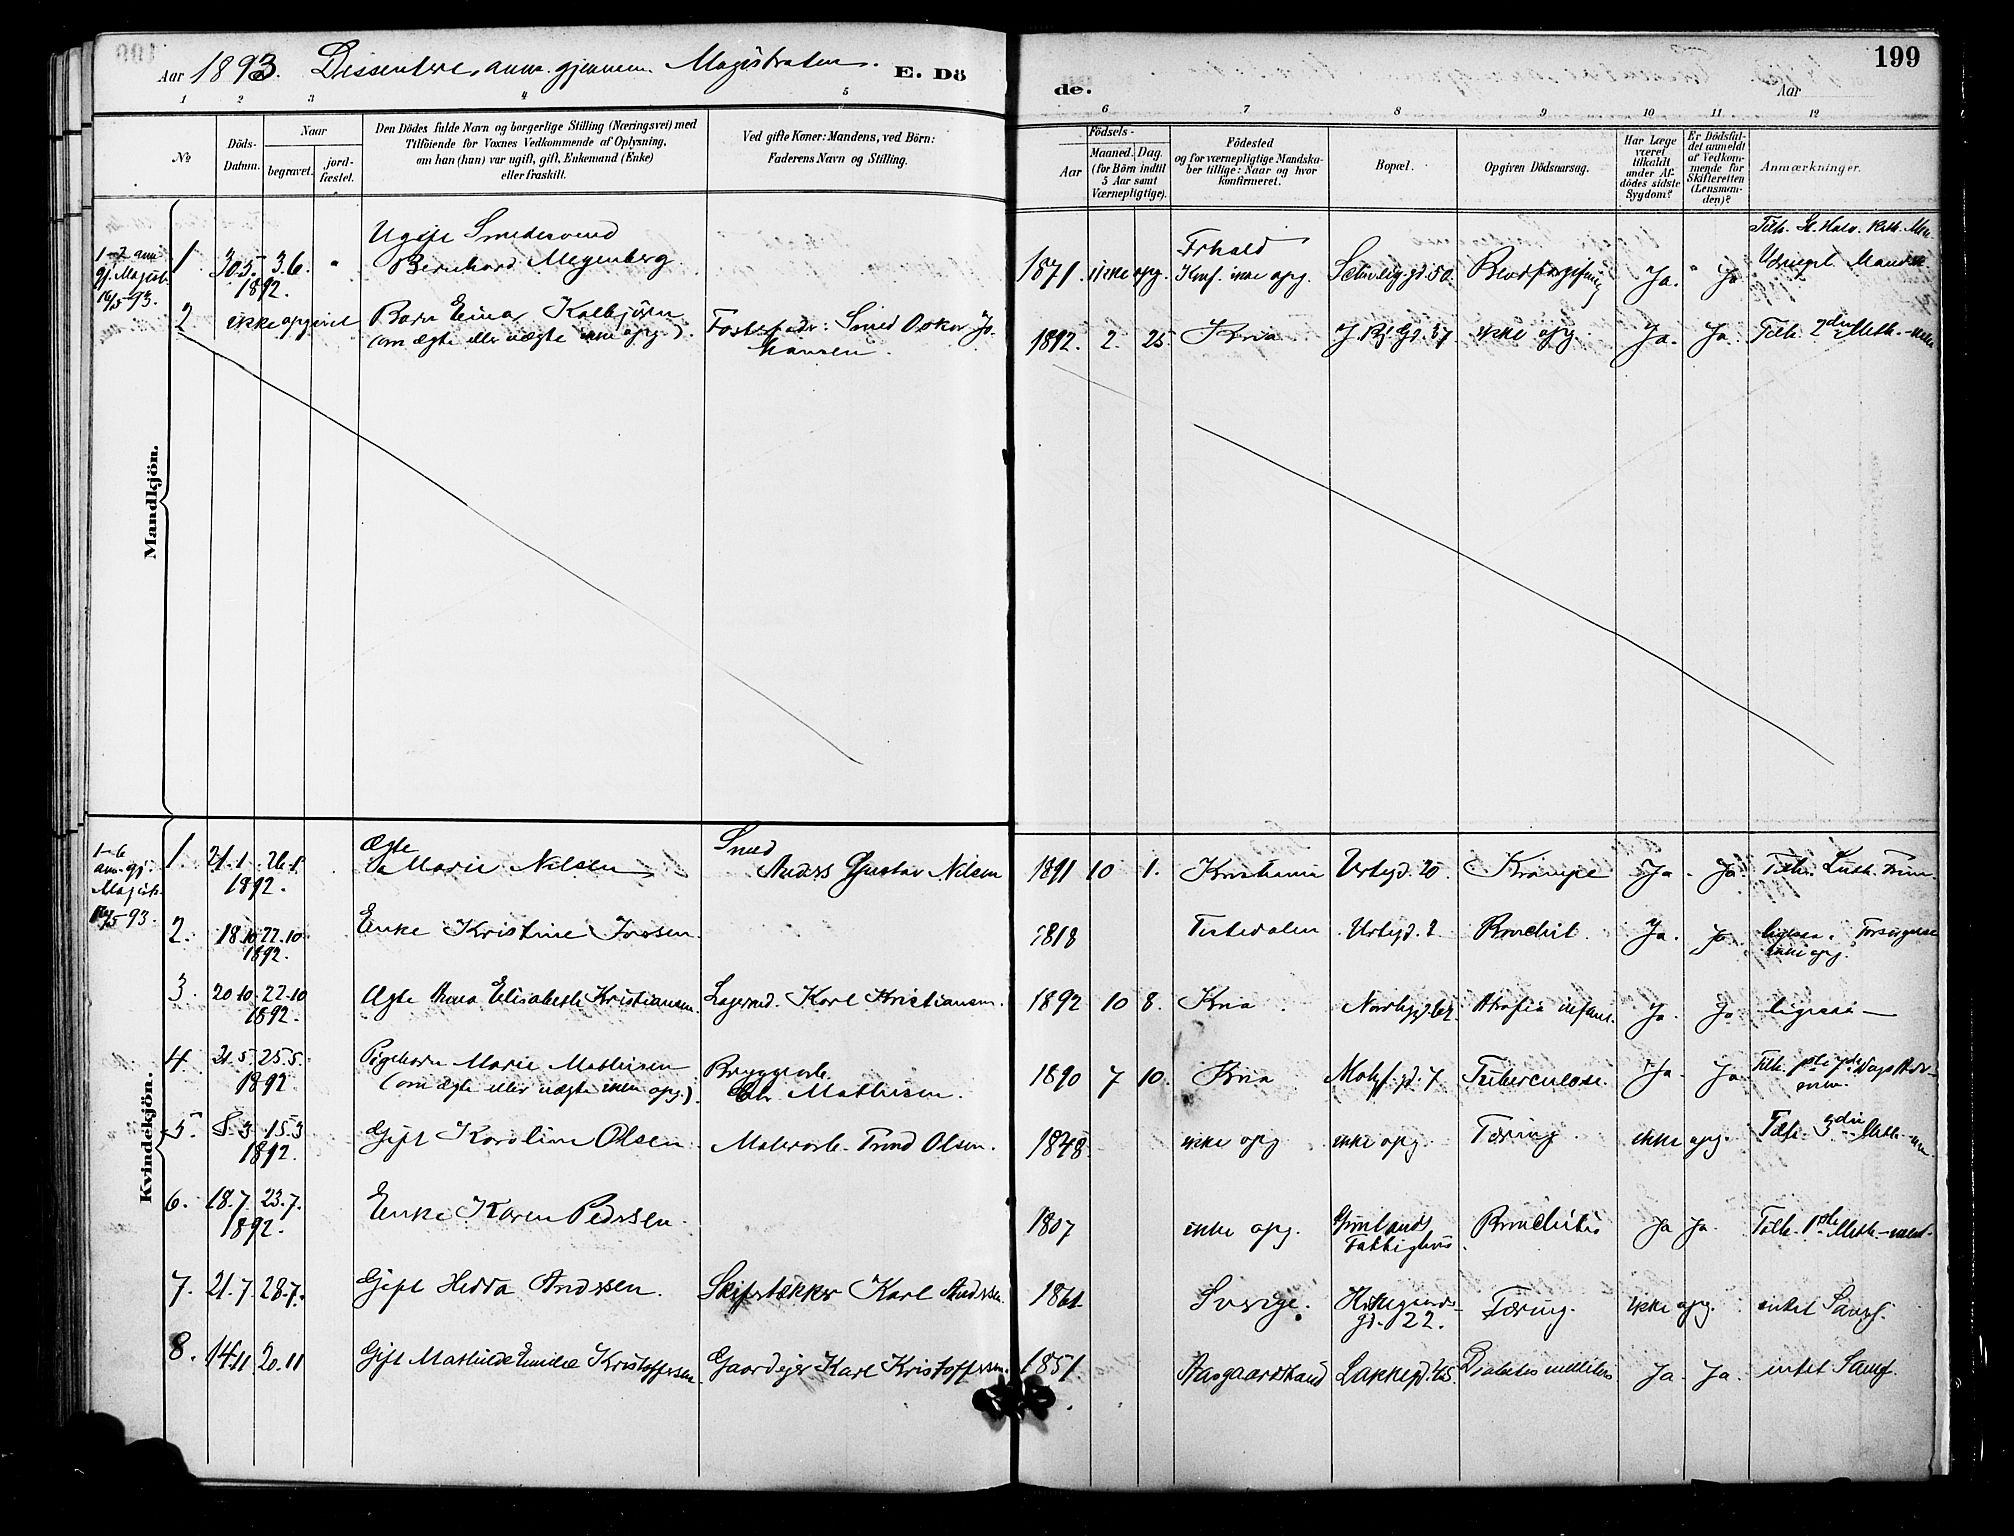 Aar 1893. Dissentere, anm. gjennem Magistraten. E. Dö
de. Aar 199
1 2 3 4 5
6 7 8 9 10 11 12
No
Döds-Datum.
Naar
begravet.
jord-fæstet.
Den Dödes fulde Navn og borgerlige Stilling (Næringsvei) med
Tilföiende for Voxnes Vedkommende af Oplysning,
om han (hun) var ugift, gift, Enkemand (Enke)
eller fraskilt.
Ved gifte Koner: Mandens, ved Börn:
Faderens Navn og Stilling.
Födsels-
Aar
Maaned. Dag
(for Börn indtil
5 Aar samt
Værnepligtige).
Födested
og for værnepligtige Mandska-
ber tillige: Naar og hvor
konfirmeret.
Bopæl.
Opgiven Dödsaarsag.
Har Læge
været
tilkaldt
under Af-
dödes sidste
Sygdom?
Er Dödsfal-
det anmeldt
af Vedkom-
mende for
Skifteretten
(Lensman-
den)?
Anmærkninger.
Mandkjön.
1-2 anm
gj. Magist.
16/5-93.
1 30.5. 3.6. 1892. Ugift Smedesvend
Bernhard Meyenberg 1871. ikke opg. Frhald
Konf. ikke opg. gd. 50. Blodforgiftning Ja. Ja
2 ikke opgivet Barn Einar Kolbjörn
(om ægte eller uægte ikke opg.) Fosterfader: Smed Oskar Jo
Hansen. 1892. 2. 25 Kria ikke opg. Ja. Ja. Tilh. 2den Meth.-
Kvindekjön.
1-6
anm. gj.
Magist.
16/5-93.
1. 21.1. 26.1. 1892. Ægte
Marie Nilsen Smed
Anders Gustav Nilsen 1891 10 1. Kristiania Urtegd. 20 Krampe Ja. Ja. Tilh. Luth. Frim.
2. 18.10 22.10. 1892. Enke Kristine 1818 Tistedalen Urtegd. 2 Bronchit. Ja. Ja. ligesaa. Forsörgelse
ikke opg.
3. 20.10. 22.10 1892. Ægte Anna Elisabeth Kristiansen. Karl Kristiansen. 1892 10 8. Kria Norbygd. Atrofia infant. Ja. Ja. ligesaa
4. 21.5. 25.5. 1892. Pigebarn Marie Mathisen
(om ægte eller uægte ikke opg.) Bryggearb.
Chr. Mathisen. 1890 7 10. Kria gd. 7 Tuberculose. Ja. Ja. Tilh. Dags Adv-
5. 8.3 15.3 1892. Gift Karoline Olsen. Malerarb. Olsen. 1848. ikke opg ikke opg. Tæring ikke opg. Tilh. 3die Meth.-
6. 18.7. 23.7. 1892. Enke Karen Pedersen. 1807 ikke opg. Grönlands
Fattighus Bronchitis Ja Ja. Tilh. 1ste Meth.-
7. 21.7. 28.7. Gift Hedda Andersen. Karl Andersen. 1861. Sverige.
gd. 22. Tæring. ikke opg. intet Samf.
8. 14.11. 20.11 Gift Mathilde Emilie Kristoffersen. Gaardejer Karl Kristoffersen. 1851 Aasgaardstrand Lakkegd. Diabetes mellitus Ja. Ja. intet Samf.